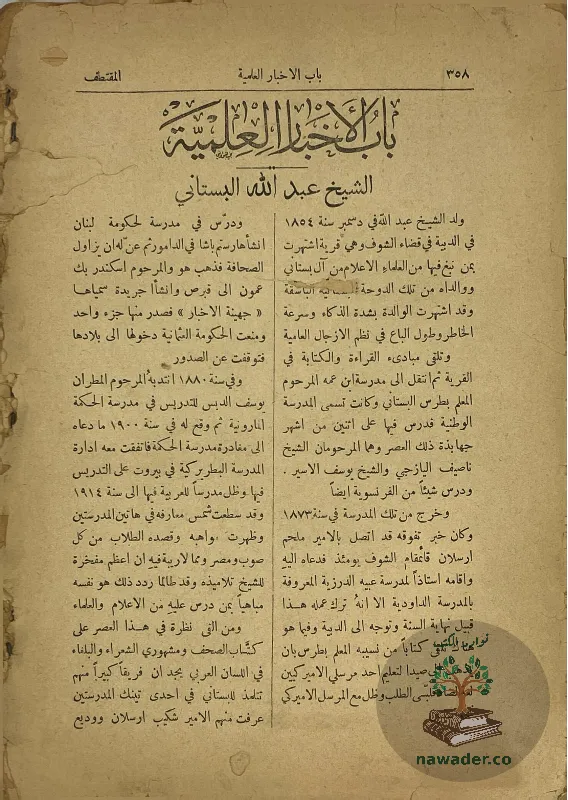 ٣٥٨
باب الاخبار العلمية
المقتطف
باب الأخبار العلمية
الشيخ عبد الله البستاني
ولد الشيخ عبد الله في دسمبر سنة ١٨٥٤
في الدبية في قضاء الشوف وهي قرية اشتهرت
بمن نبغ فيها من العلماء الاعلام من آل بستاني
ووالداه من تلك الدوحة البستانية الباسقة
وقد اشتهرت الوالدة بشدة الذكاء وسرعة
الخاطر وطول الباع في نظم الازجال العامية
وتلقى مبادىء القراءة والكتابة في
القرية ثم انتقل الى مدرسة ابن عمه المرحوم
المعلم بطرس البستاني وكانت تسمى المدرسة
الوطنية فدرس فيها على اثنين من اشهر
جهابذة ذلك العصر وهما المرحومان الشيخ
ناصيف اليازجي والشيخ يوسف الاسير .
ودرس شيئاً من الفرنسوية ايضاً
وخرج من تلك المدرسة في سنة ١٨٧٣
وكان خبر تفوقه قد اتصل بالامير ملحم
ارسلان قائمقام الشوف يومئذ فدعاه اليه
واقامه استاذاً لمدرسة عبيه الدرزية المعروفة
بالمدرسة الداودية الا انهُ ترك عمله هـذا
قبيل نهاية السنة وتوجه الى الدبية وفيما هو
هناك تلقى كتاباً من نسيبه المعلم بطرس بان
الى صيدا لتعليم احد مرسلي الاميركيين
فلبى الطلب وظل مع المرسل الاميركي
ودرّس في مدرسة لحكومة لبنان
انشأها رستم باشا في الدامور ثم عنّ له ان يزاول
الصحافة فذهب هو والمرحوم اسكندر بك
عمون الى قبرص وانشأا جريدة سمياها
« جهينة الاخبار » فصدر منها جزء واحد
ومنعت الحكومة العثمانية دخولها الى بلادها
فتوقفت عن الصدور
وفي سنة ١٨٨٠ انتدبهُ المرحوم المطران
يوسف الدبس للتدريس في مدرسة الحكمة
المارونية ثم وقع له في سنة ١٩٠٠ ما دعاه
الى مغادرة مدرسة الحكمة فاتفقت معه ادارة
المدرسة البطريركية في بيروت على التدريس
فيها وظل مدرساً للعربية فيها الى سنة ١٩١٤
وقد سطعت شمس معارفه في هاتين المدرستين
وظهرت مواهبه وقصده الطلاب من كل
صوب ومصر ومما لا ريبة فيه ان اعظم مفخرة
للشيخ تلاميذه وقد طالما ردد ذلك هو نفسه
مباهياً بمن درس عليه من الاعلام والعلماء
ومن القى نظرة في هـذا العصر على
كتّاب الصحف ومشهوري الشعراء والبلغاء
في اللسان العربي يجد ان فريقاً كبيراً منهم
تتلمذ للبستاني في احدى تينك المدرستين
عرفت منهم الامير شكيب ارسلان ووديع
نوادر الكتب
nawader.co